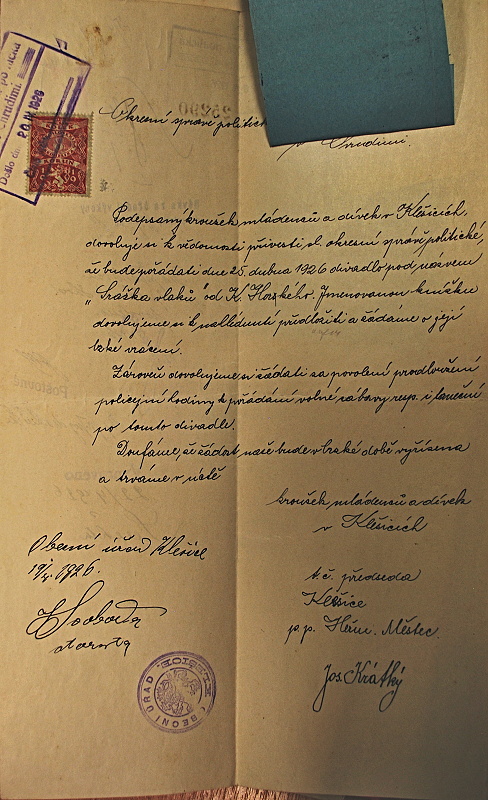 Chrudimi
Došlo dne 20.IV.1926
Okresní správě politick
v Chrudimi.
Podepsaný kroužek mládenců a dívek v Klešicích,
dovoluje si k vědomosti přivésti, sl. okresní správě politické,
že bude pořádati dne 25 dubna 1926 divadlo pod názvem
„Srážka vlaků" od K. Horského. Jmenovanou knížku
dovolujeme si k nahlédnutí předložiti a žádáme o její
také vrácení.
Zároveň dovolujeme si žádati za povolení prodloužení
policejní hodiny k pořádání volné zábavy resp. i taneční
po tomto divadle.
Doufáme, že žádost naše bude v krátké době vyřízena
a trváme v úctě
kroužek mládenců a dívek
v Klešicích
Obecní úřad Klešice
19/4. 1926.
t.č. předseda
Klešice
p.p. Heřm. Městec.
Svoboda
starosta
Jos. Krátký
OBECNÍ ÚŘAD